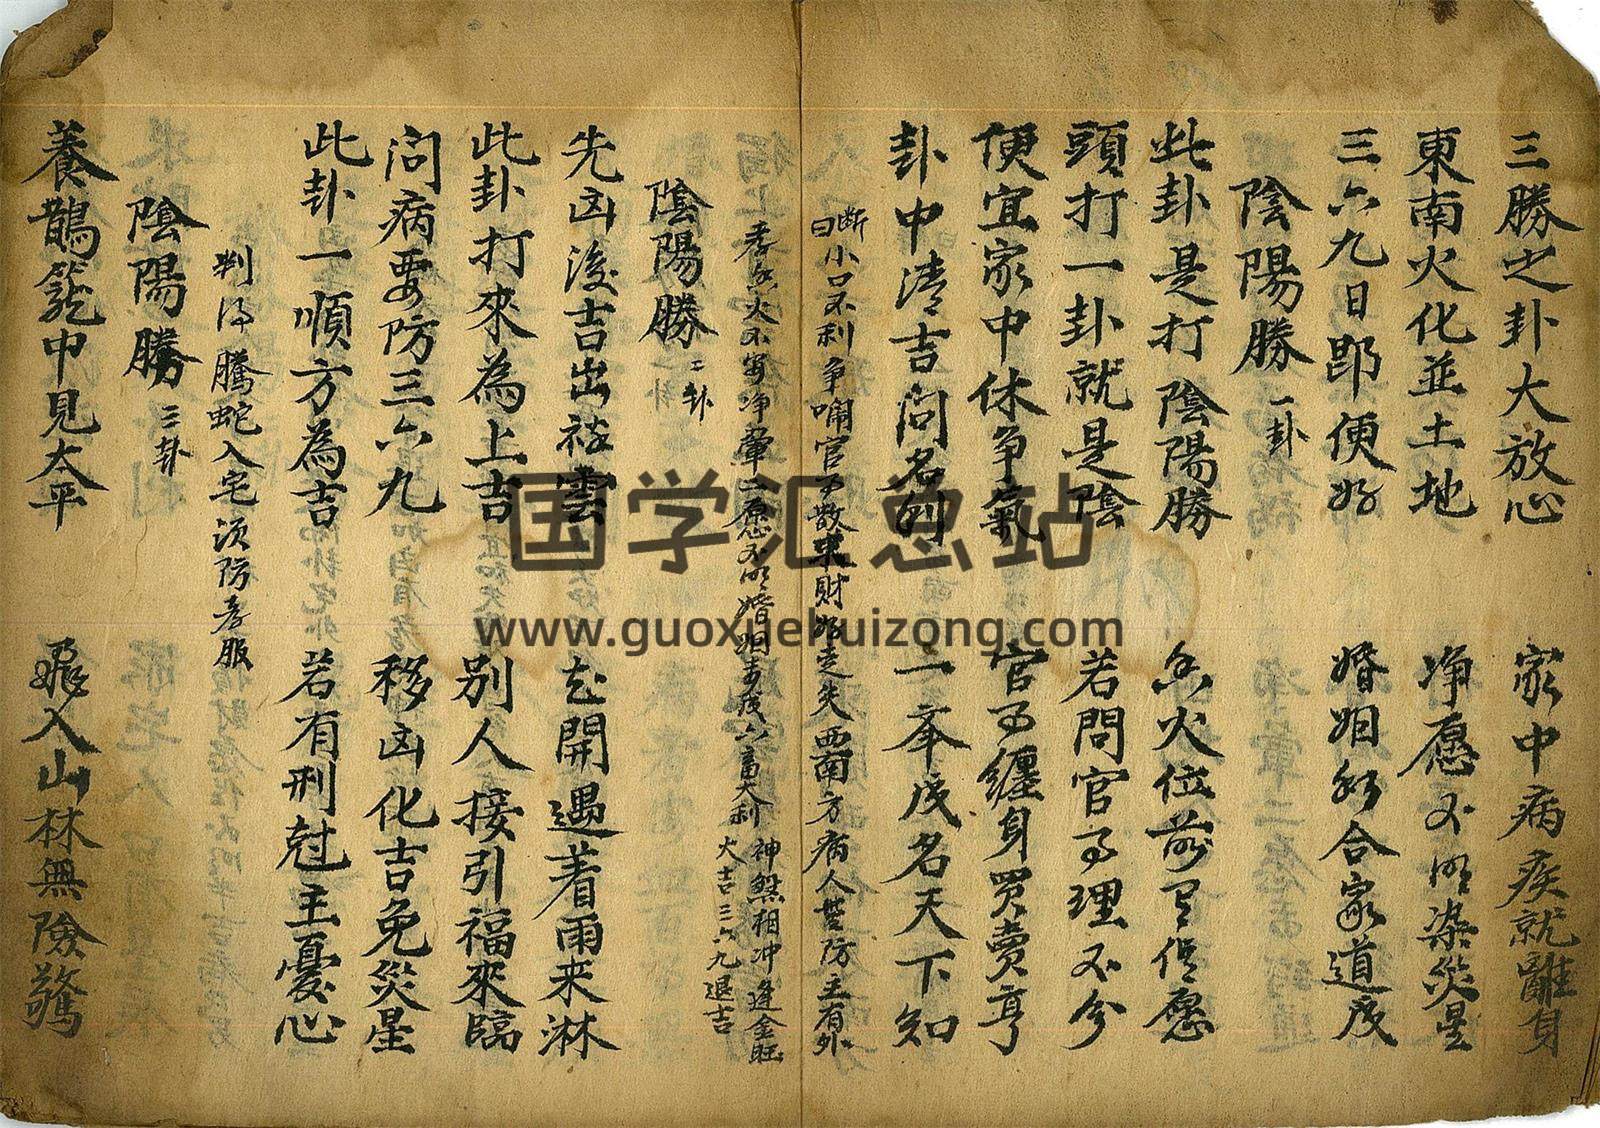 三勝之卦大放心 家中病疾就離身
東南火化並土地 净愿不明染災星
三六九日即便好 婚姻和合家道成
陰陽勝 一卦
此卦是打陰陽勝 香火位前有舊愿
頭打一卦就是陰 若問官事理不分
便宜家中休争氣 官事纏身買賣亨
卦中清吉问名利 一舉成名天下知
斷曰 小口不利争鬧官事散求財好走失西南方病人莹防主有外
香火不安净葷二愿不明婚姻青成六畜大利 神煞相冲逢金旺
大吉三六九退吉
陰陽勝 二卦
先凶後吉出祥雲 花開遇着雨来淋
此卦打來為上吉 别人接引福來臨
问病要防三六九 移凶化吉免災星
此卦一順方為吉 若有刑尅主憂心
判得騰蛇入宅須防孝服
陰陽勝 三卦
養鵲籠中見太平 飛入山林無險驚
国学汇总站
www.guoxuehuizong.com